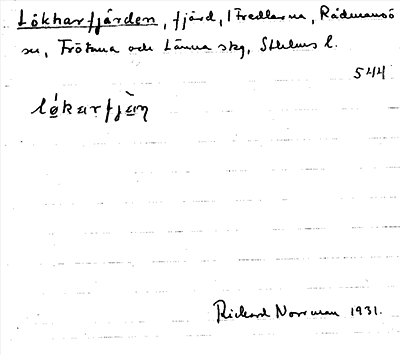 Lökharfjärden, fjärd, i Fredlarna, Rådmansö
sn, Frötuna och Länna skg, Sthlms l.
544
Rickard Norrman 1931.